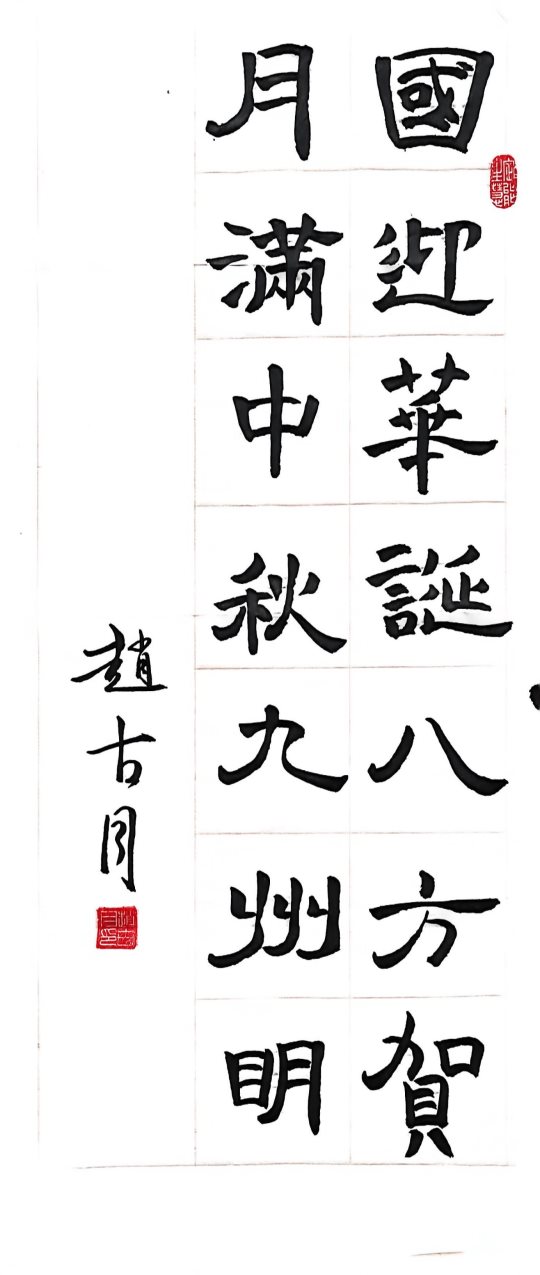 國迎華誕八方賀
月滿中秋九州明
趙古月